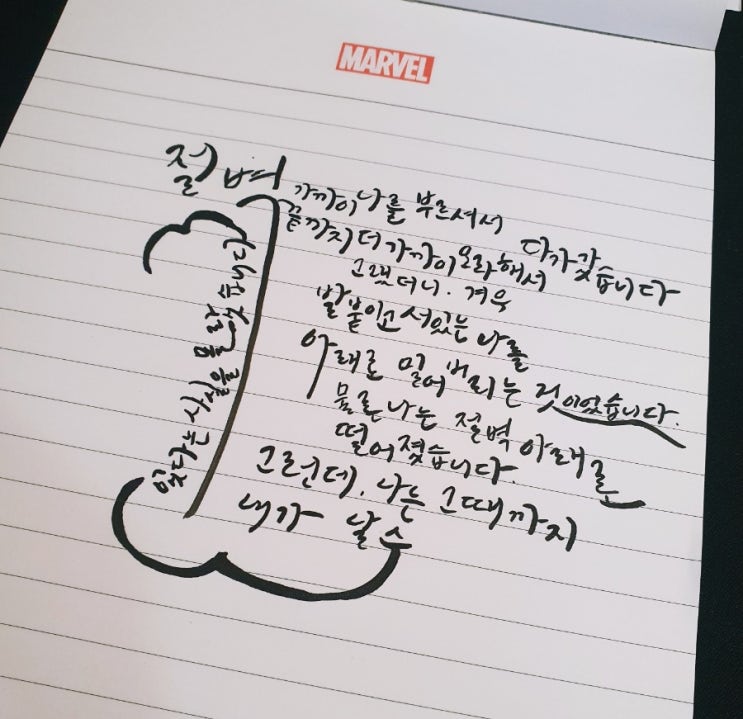 MARVEL
절벽
가까이 나를 부르셔서 다가갔습니다
끝까지 더 가까이 오라해서
그랬더니. 겨우
발 붙이고 서있는 나를
아래로 밀어 버리는 것이었습니다.
물론 나는 절벽 아래로
떨어졌습니다.
그런데, 나는 그때까지
내가 날 수
있다는 사실을 몰랐습니다